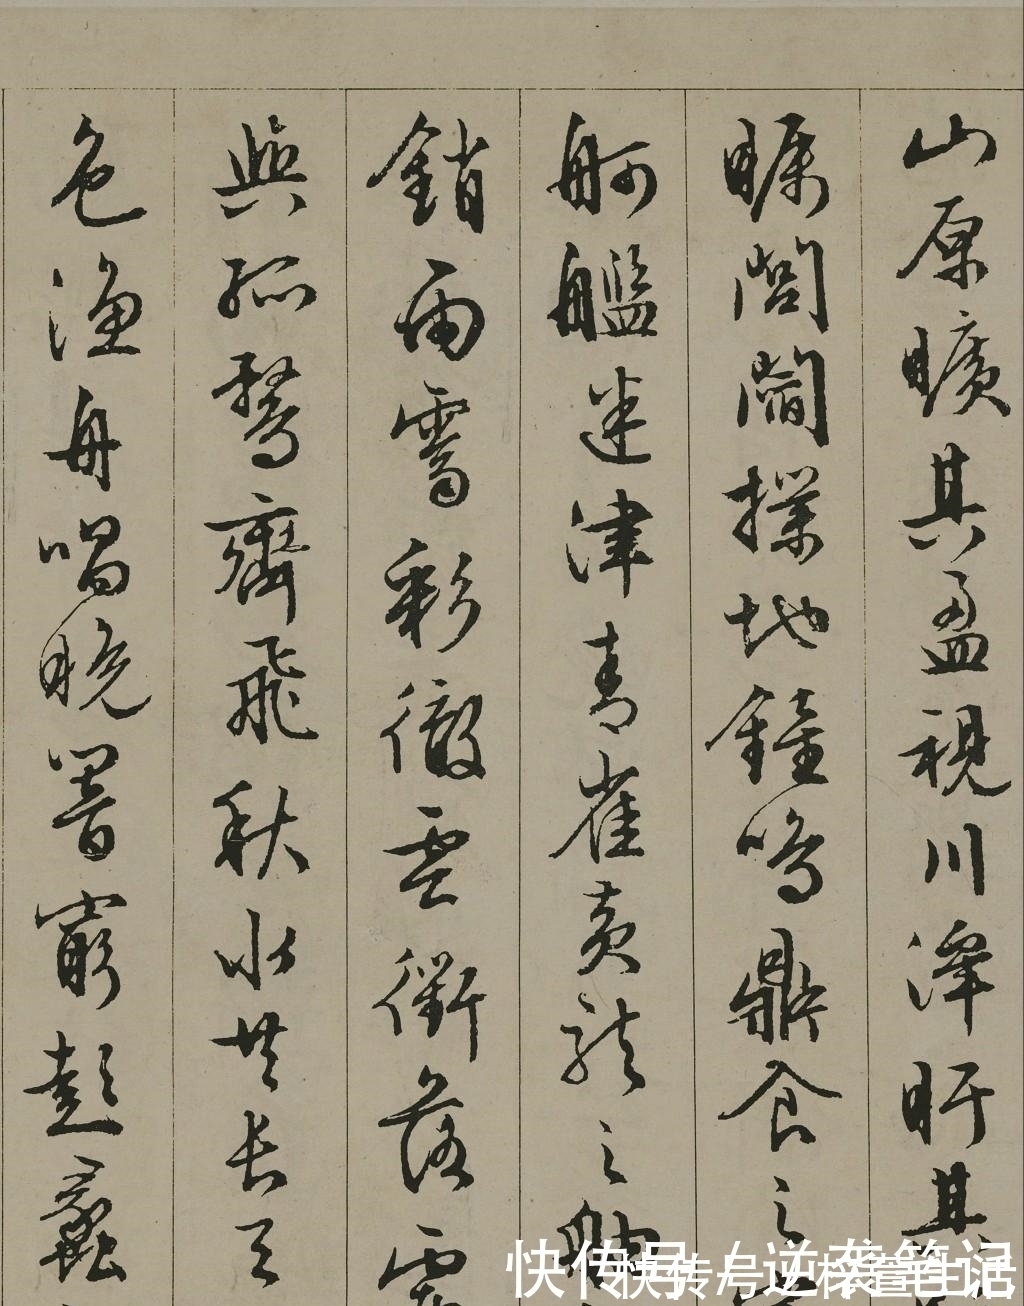 山原曠其盈視川澤盱其
矚閭閻撲地鐘鳴鼎食之
舸艦迷津青雀黃龍之舳
銷雨霽彩徹雲衢落霞
與孤鶩齊飛秋水共長天
色漁舟唱晚響窮彭蠡
快传号/逆袭笔记